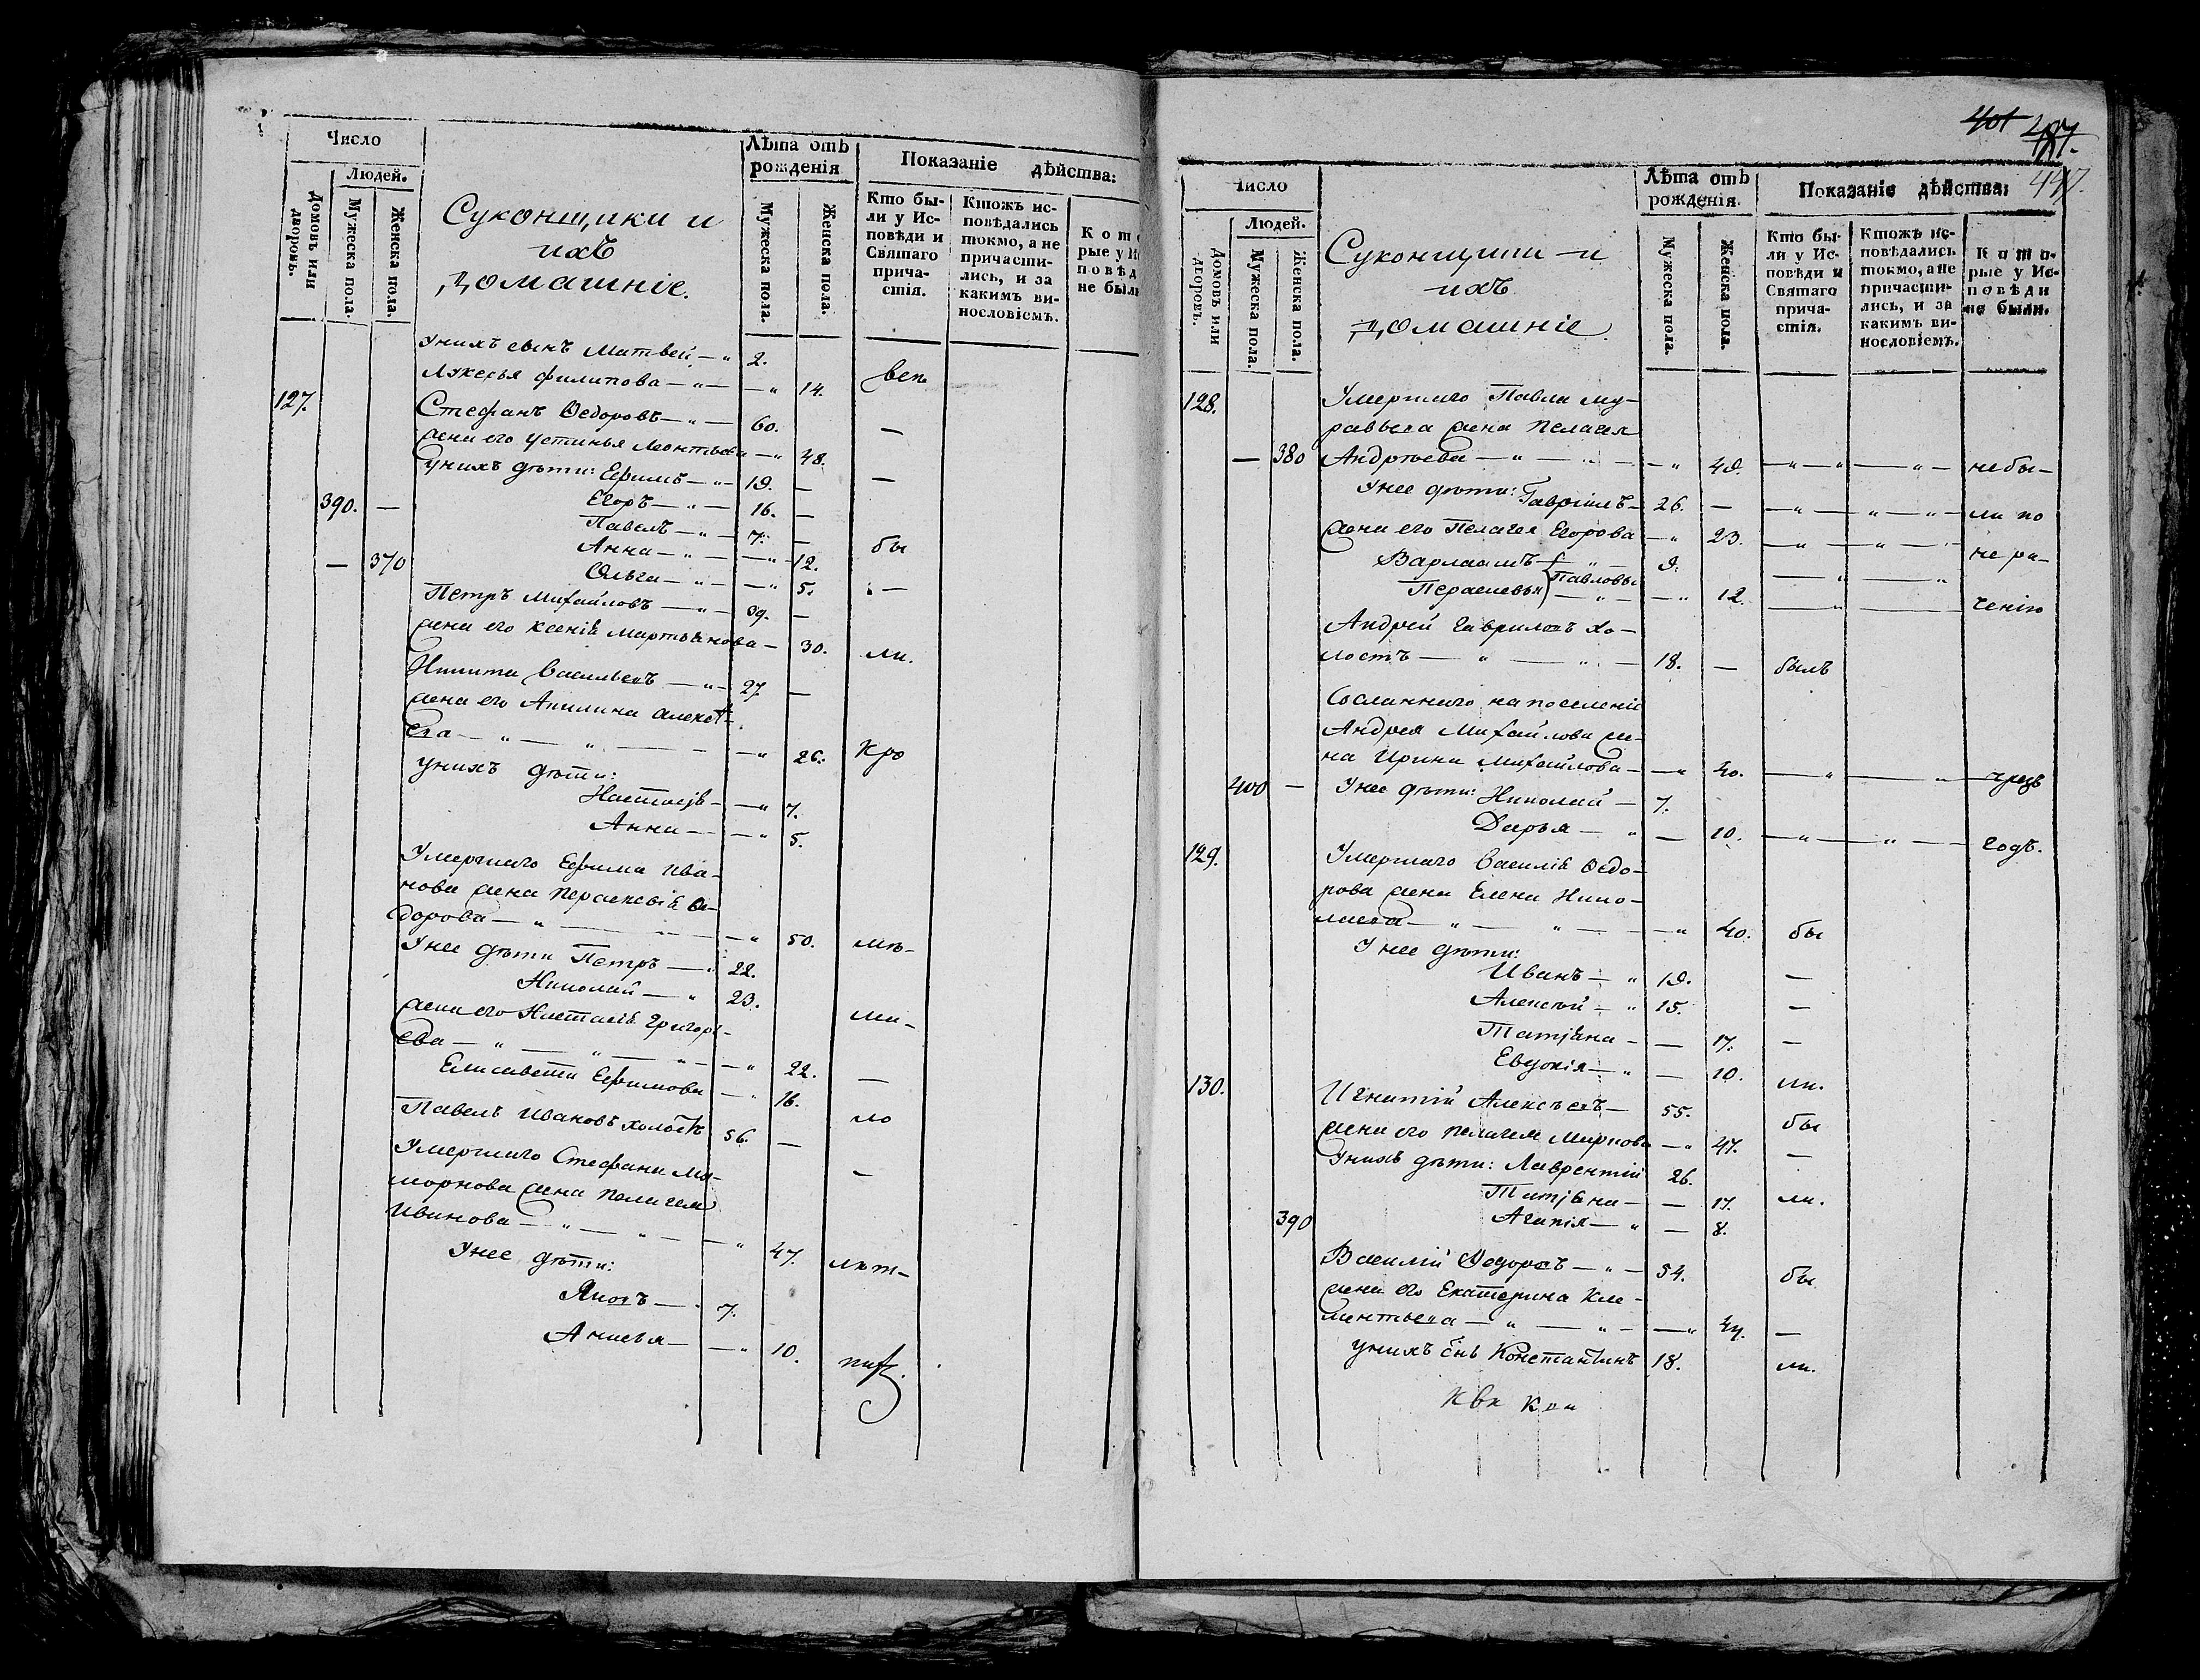 Число
Людей.
Домовъ или дворовъ.
Мужеска пола.
Женска пола.
Суконщики и
ихъ
домашніе.
Лѣта отъ рожденія
Мужеска пола.
Женска пола.
Показаніе дѣйства:
Кто были у Исповѣди и Святаго причастія.
Ктожъ исповѣдались токмо, а не причастились, и за какимъ винословіемъ.
унихъ сынъ Матвей — 2.
Лукерья Филипова — 14.
127. Стефанъ Ѳедоровъ — 60. —
жена его Устинья Леонтьева — 48.
унихъ дѣти: Ефримъ — 19. — —
390. — Егоръ — 16. —
Павелъ — 7. —
Анна — 12. бы
— 370 Ольга — 5. —
Петръ Михайловъ — 39. —
жена его Ксенія Мартьянова — 30. ли.
Никита Васильевъ — 27 —
жена его Акилина Алексѣ-
ева — 26. кро
унихъ дѣти:
Настасія — 7.
Анна — 5.
Умершаго Ефима Ива-
нова жена Параскевія Ѳе-
дорова — 50. мѣ-
Унее дѣти Петръ — 22.
Николай — 23.
жена его Настасія Григорь-
ева — 22. —
Елисавета Ефимова — 16.
ма-
ло
Павелъ Ивановъ холостъ 56. —
Умершаго Стефана Ма-
моркова жена Пелагея —
Иванова — 47. лѣт-
Унее дѣти:
Яковъ — 7.
Анисья — 10. нихъ.
401
447.
Число
Людей.
Домовъ или дворовъ.
Мужеска пола.
Женска пола.
Суконщики и
ихъ
домашніе.
Лѣта отъ рожденія.
Мужеска пола.
Женска пола.
Показаніе дѣйства:
Кто были у Исповѣди и Святаго причастія.
Ктожъ исповѣдались токмо, а не причастились, и за какимъ винословіемъ.
Которые у Исповѣди не были.
128. Умершаго Павла Му-
равьева жена Пелагея
— 380 Андрѣева — 49. небы-
Унее дѣти: Гавріилъ — 26. — ли по
жена его Пелагея Егорова — 23. нера-
Варлаамъ — 9.
Параскевья Павловы — 12. ченію
Андрей Гавриловъ хо-
лостъ — 18. — былъ
Сосланнаго на поселеніе
Андрея Михайлова же-
на Ирина Михайлова — 40. чрезъ
400 — Унее дѣти: Николай — 7.
Дарья — 10. годъ.
129. Умершаго Василія Ѳедо-
рова жена Елена Нико-
лаева — 40. бы
Унее дѣти:
Иванъ — 19. —
Алексѣй — 15. —
Татіяна — 17. —
Евдокія — 10. ли.
130. Игнатій Алексѣевъ — 55. бы
жена его Пелагея Миронова — 47. —
Унихъ дѣти: Лаврентій 26.
Татіяна — 17. ли.
390 Агапія — 8.
Василій Ѳедоровъ — 54. бы
жена его Екатерина Кле-
ментьева — 44. —
унихъ снъ Константинъ 18. ли.